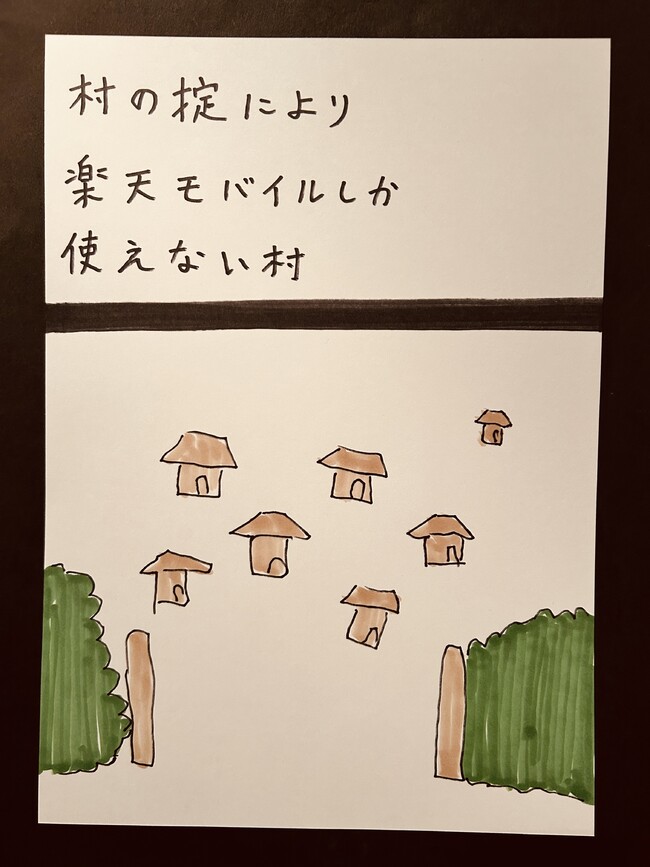 村の掟により
楽天モバイルしか
使えない村